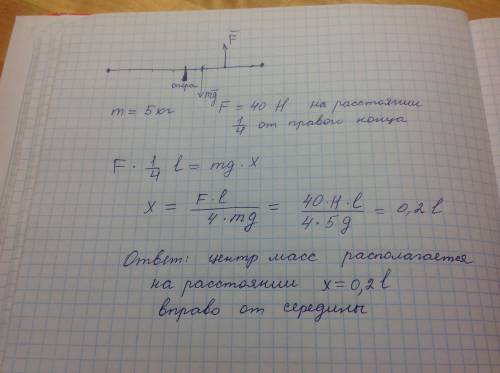 F̅
опора
mg̅
m = 5 кг F = 40 H на расстоянии
1/4 от правого конца
F · 1/4 l = mg · x
x = F · l / 4 · mg = 40 · H · l / 4 · 5g = 0,2 l
Ответ: центр масс располагается
на расстоянии x = 0,2 l
вправо от середины